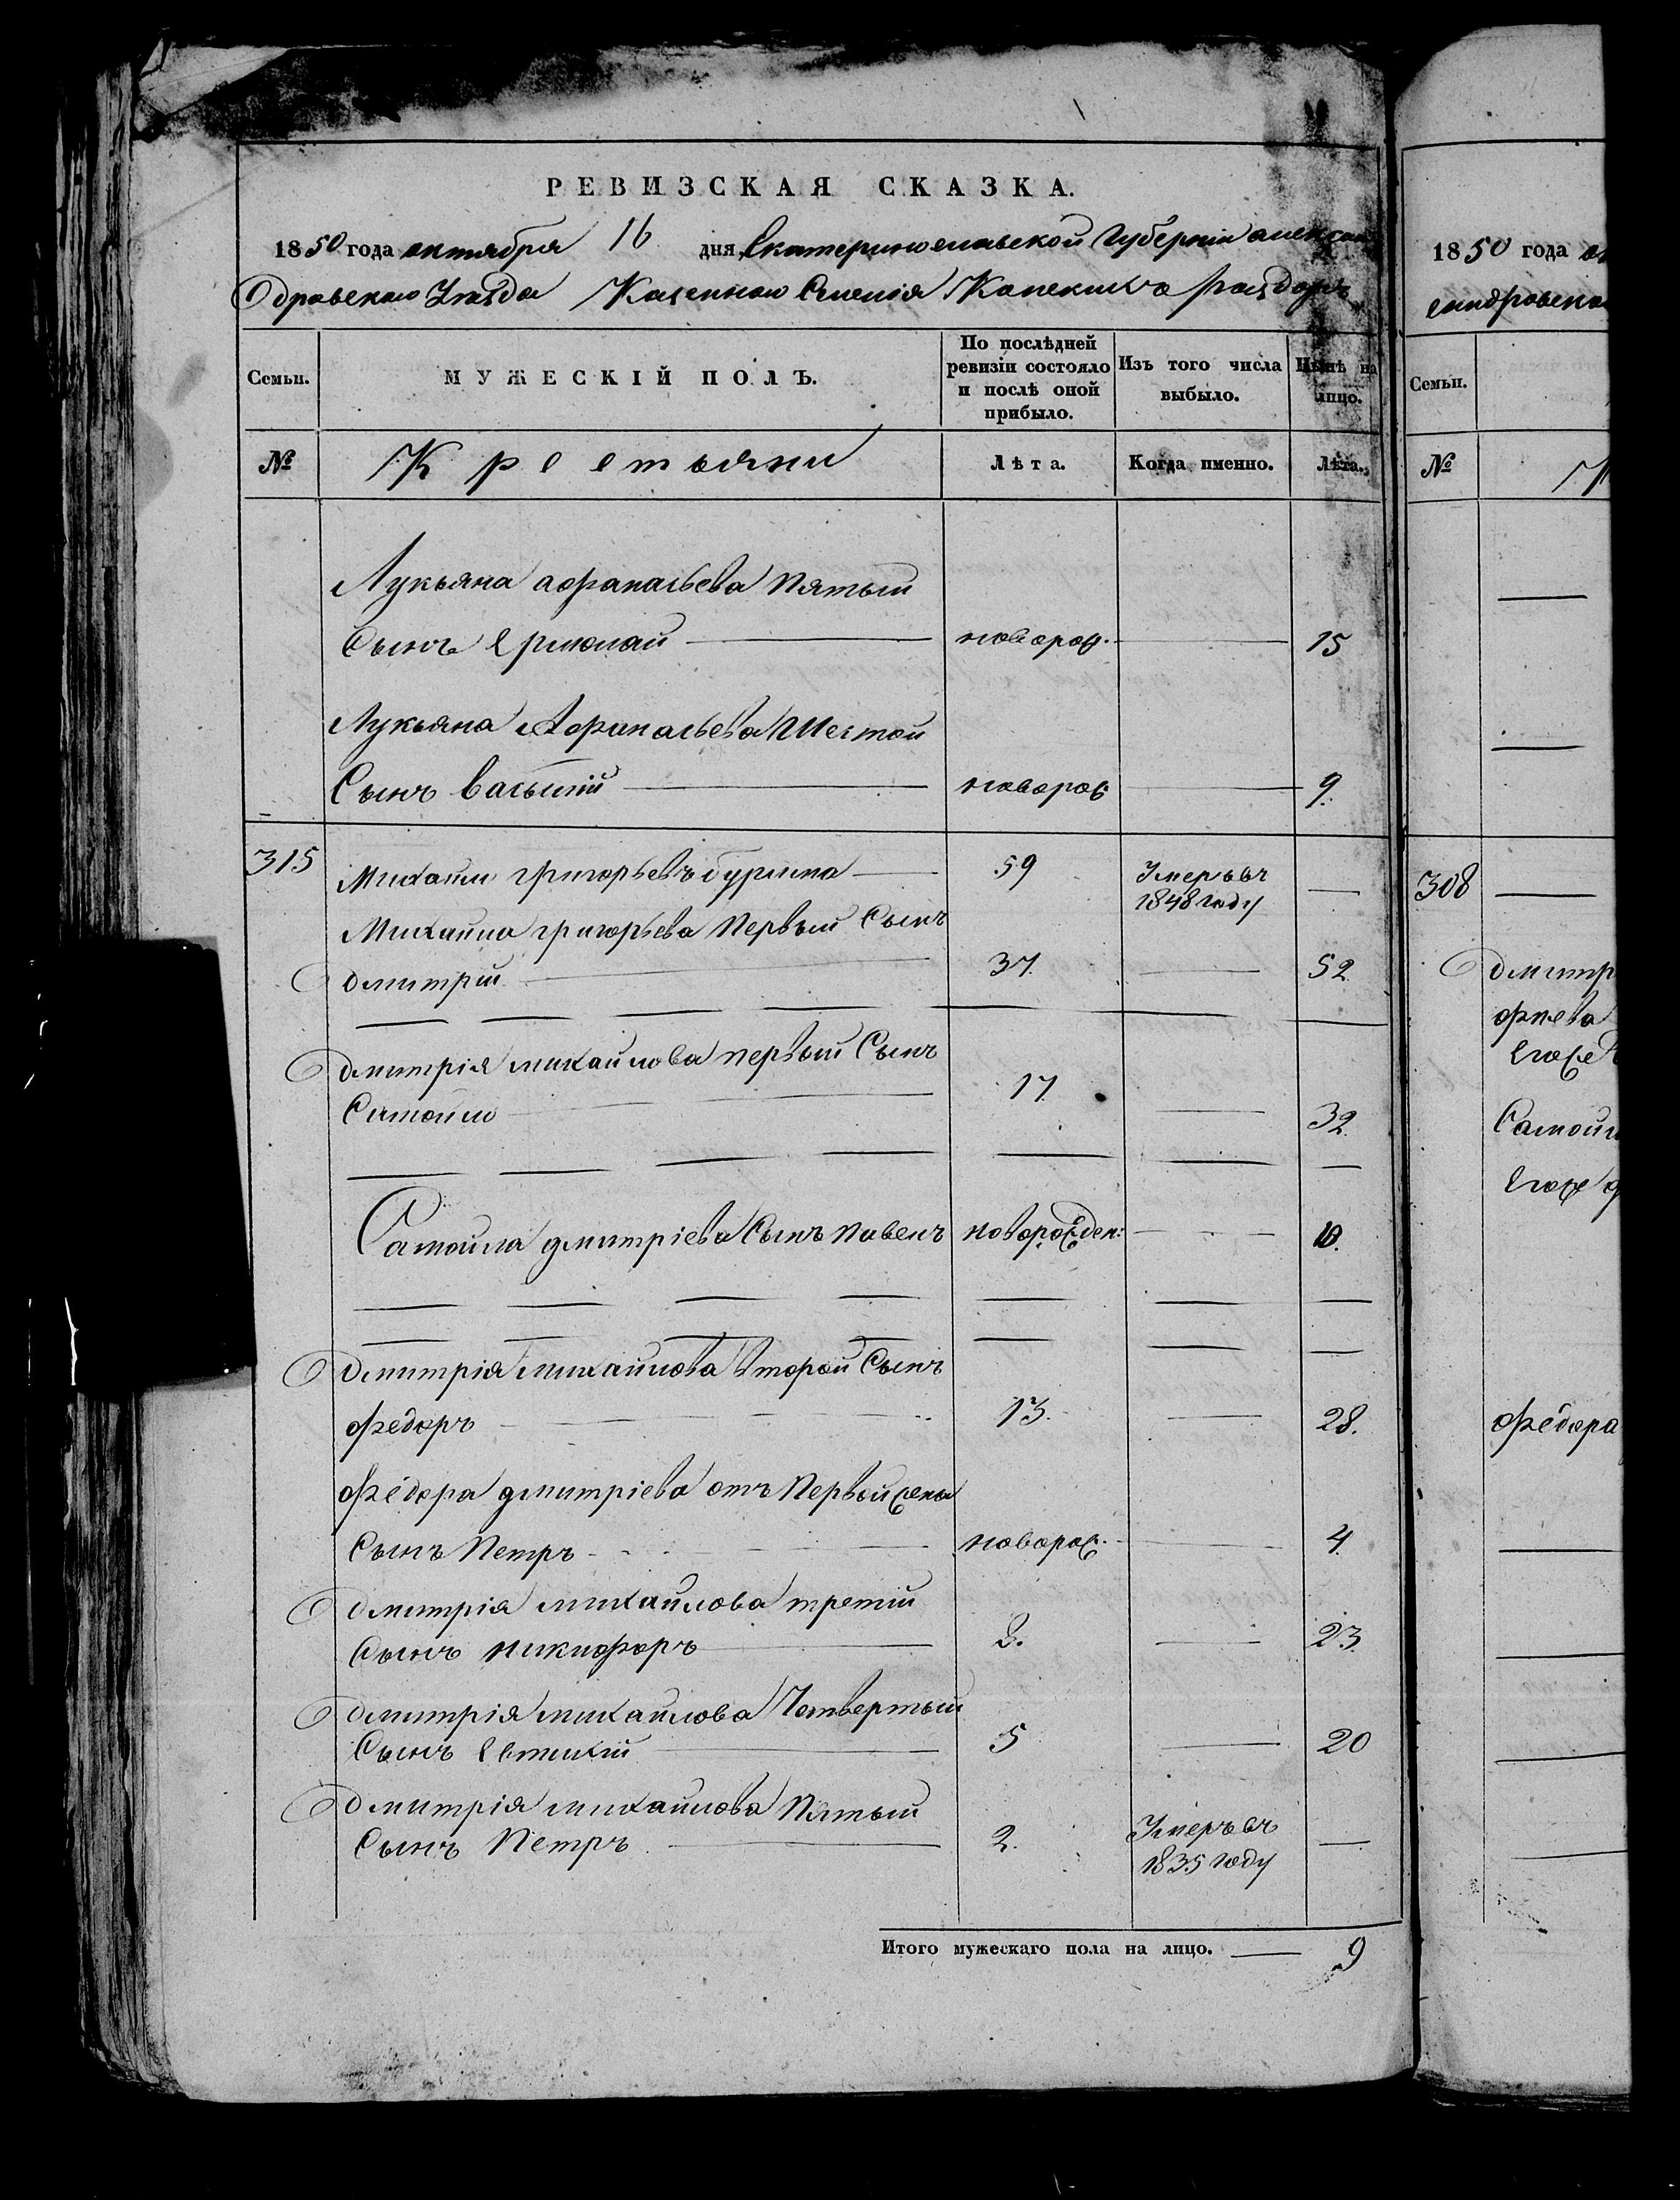 РЕВИЗСКАЯ СКАЗКА.
1850 года октября 16 дня, Екатеринославской Губерніи алексан
дровскаго Уѣзда Казеннаго Селенія Конскихъ Раздоръ
Семьи.
МУЖЕСКІЙ ПОЛЪ.
По послѣдней ревизіи состояло и послѣ оной прибыло.
Изъ того числа выбыло.
Нынѣ на лицо.
№
Крестьяни
Лѣта.
Когда именно.
Лѣта.
Лукьяна афанасьева Пятый
Сынъ Ермолай новорож. 15
Лукьяна Афанасьева Шестой
Сынъ василій новорож 9.
315 Михайло григорьевъ бурлика 59 Умеръ въ 1848 году
Михайла григорьева Первый Сынъ
дмитрій 37. 52
дмитрія михайлова первый Сынъ
Самойло 17. 32.
Самойла дмитріева Сынъ павелъ новорожден: 10.
дмитрія михайлова второй Сынъ
федоръ 13. 28.
федора дмитріева отъ Первой жены
Сынъ Петръ новорож. 4.
дмитрія михайлова третій
Сынъ никифоръ 8. 23
дмитрія михайлова Четвертый
Сынъ Евтихій 5 20
дмитрія михайлова Пятый
Сынъ Петръ 2. Умеръ въ 1835 году
Итого мужескаго пола на лицо. 9
1850 года
Семьи.
№
308
федора